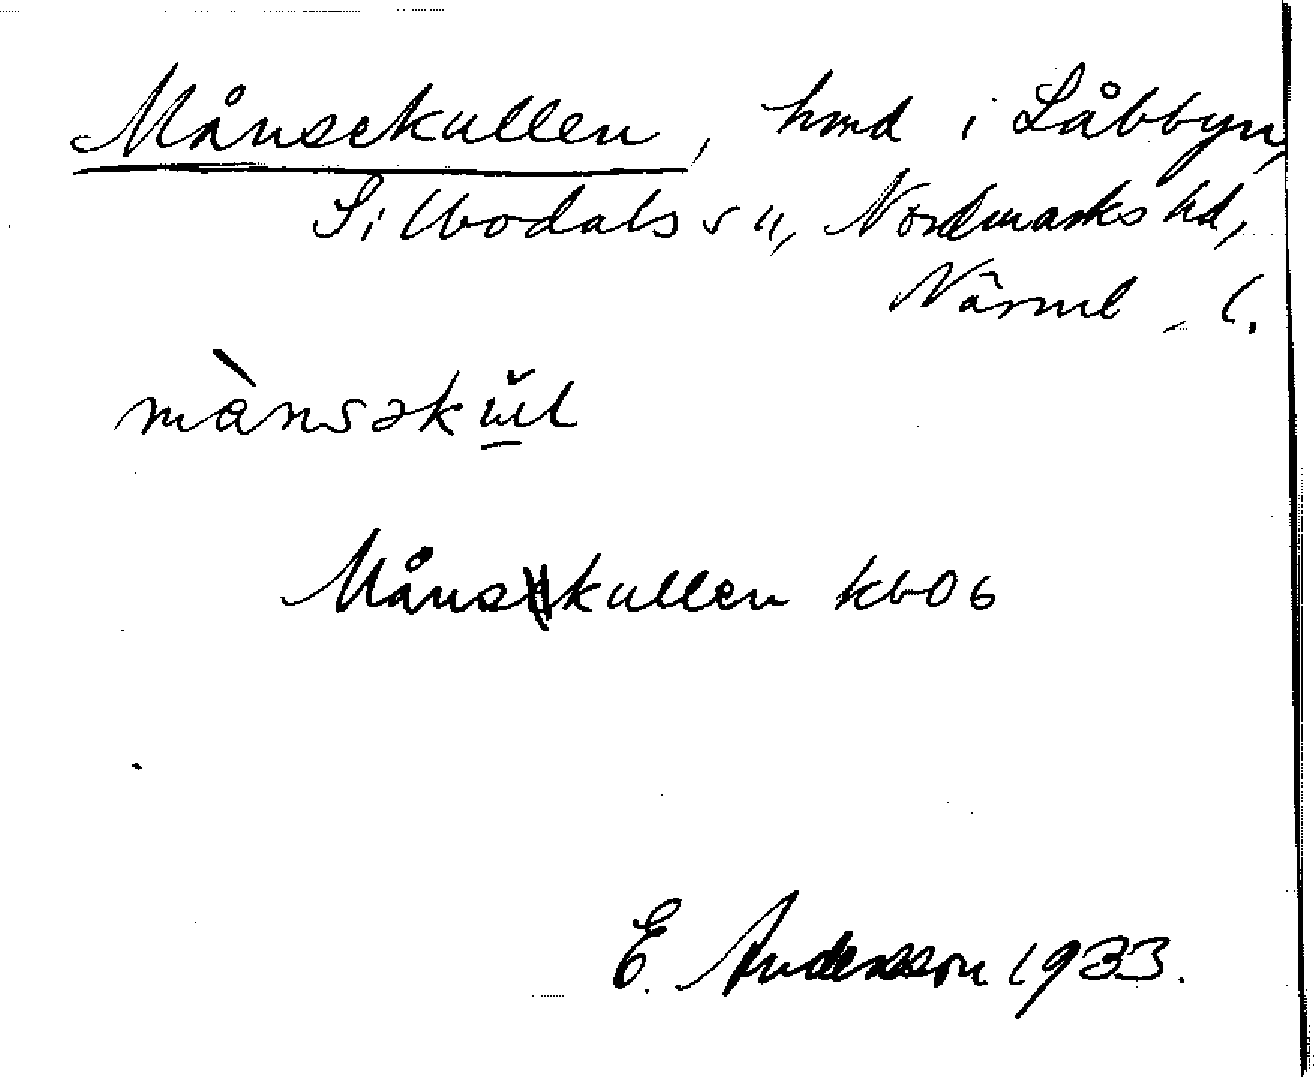 Månsekullen, hmd i Låbbyn,
Silbodals sn, Nordmarks hd,
Värml. l.
mànsəkŭl
Månsekullen kb06
E. Andersson 1933.